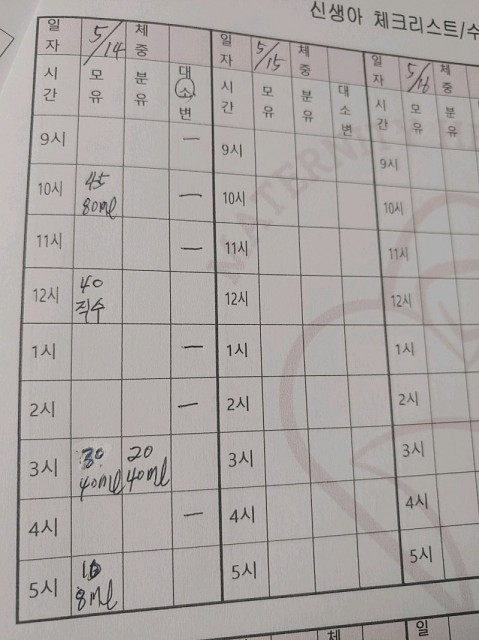 신생아 체크리스트/수
일자 5/14 체중 일자 5/15 체중 일자 5/16 체중
시간 모유 분유 대소변 시간 모유 분유 대소변 시간 모유 분유
9시 — 9시 9시
10시 45 80ml — 10시 10시
11시 — 11시 11시
12시 40 직수 12시 12시
1시 — 1시 1시
2시 — 2시 2시
3시 30 40ml 20 40ml 3시 3시
4시 — 4시 4시
5시 10 8ml 5시 5시
체 일
MATERNITY